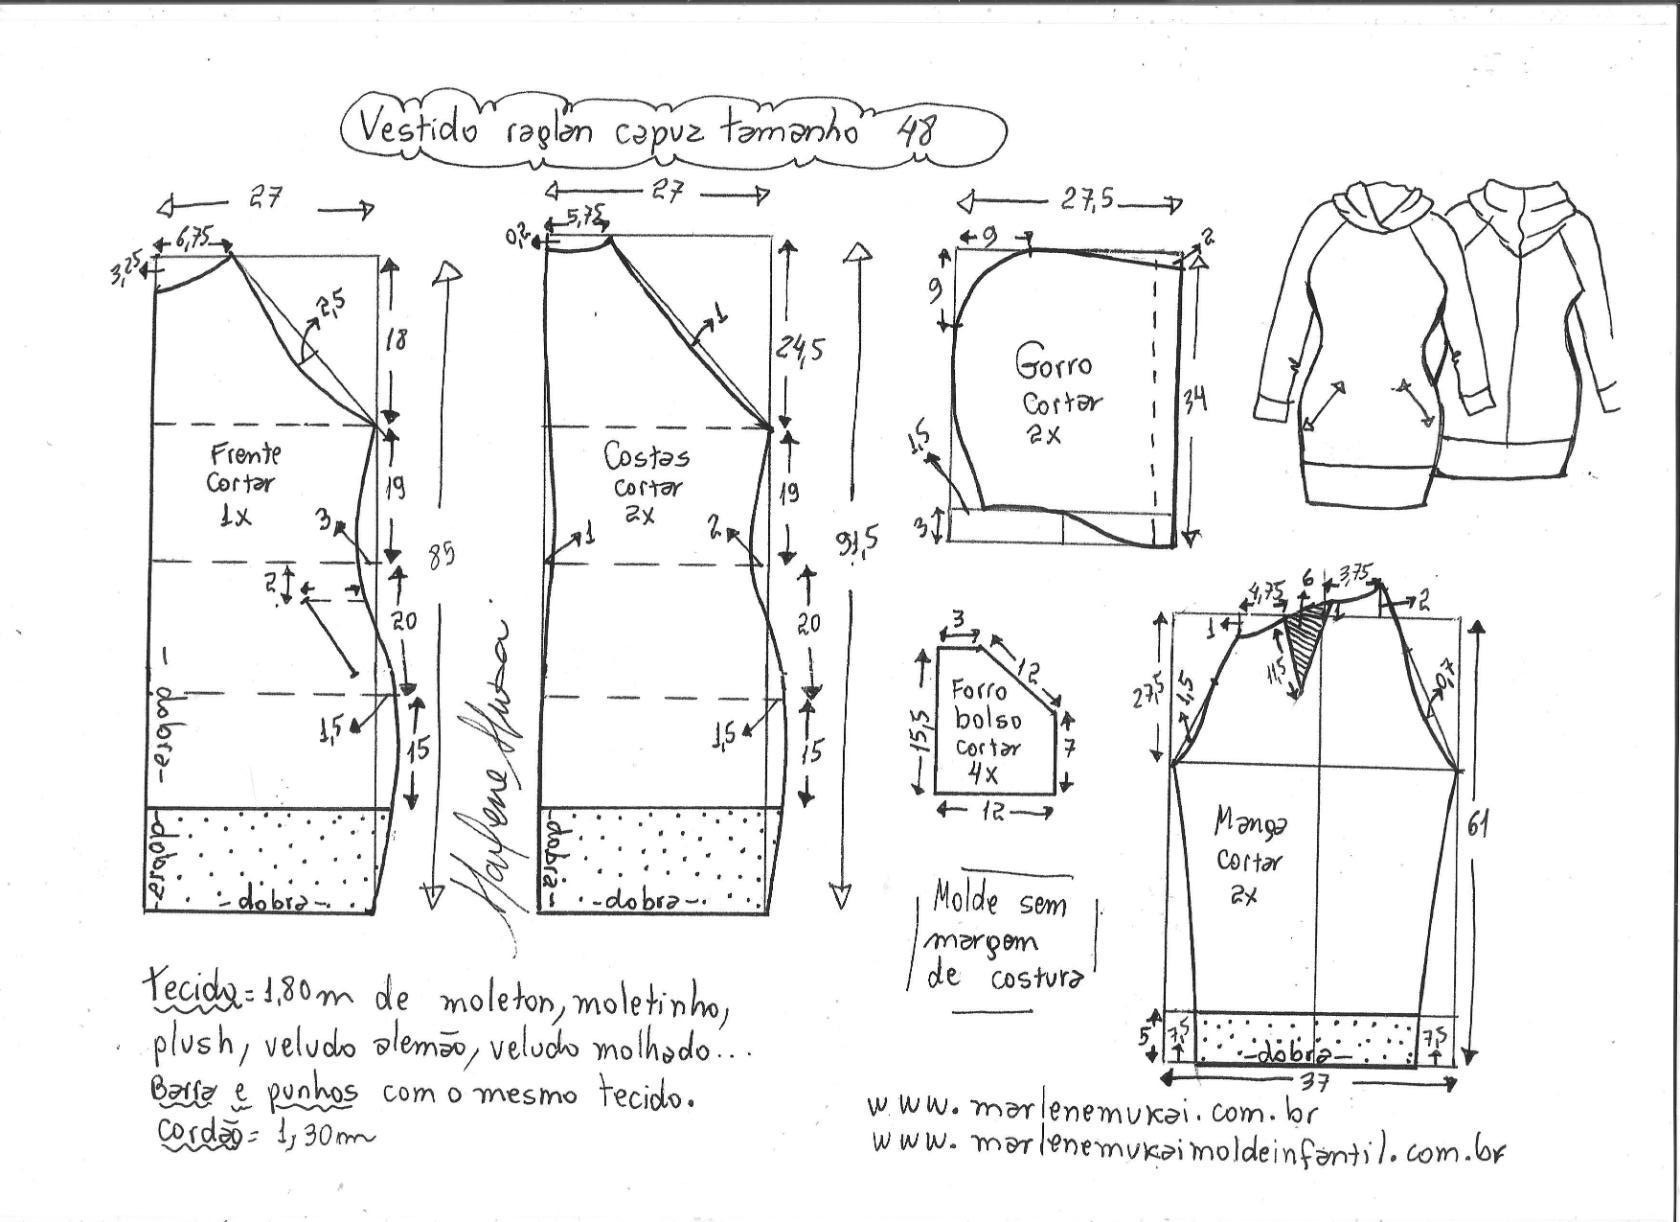 Vestido raglan capuz tamanho 48
27
6,75
3,25
2,5
18
Frente
Cortar
1x
19
3
2
20
1,5
15
85
-dobra-
-dobra-
-dobra-
27
5,75
0,2
1
24,5
Costas
cortar
2x
19
1
2
20
1,5
15
91,5
-dobra-
-dobra-
27,5
9
2
9
Gorro
Cortar
2x
34
1,5
3
3
12
Forro
bolso
cortar
4x
15,5
7
12
4,75
6
3,75
1
1
2
11,5
27,5
1,5
0,7
Manga
Cortar
2x
61
5
7,5
-dobra-
7,5
37
Molde sem
margem
de costura
Tecido=1,80m de moleton, moletinho,
plush, veludo alemão, veludo molhado...
Barra e punhos com o mesmo tecido.
Cordão= 1,30m
www.marlenemukai.com.br
www.marlenemukaimoldeinfantil.com.br